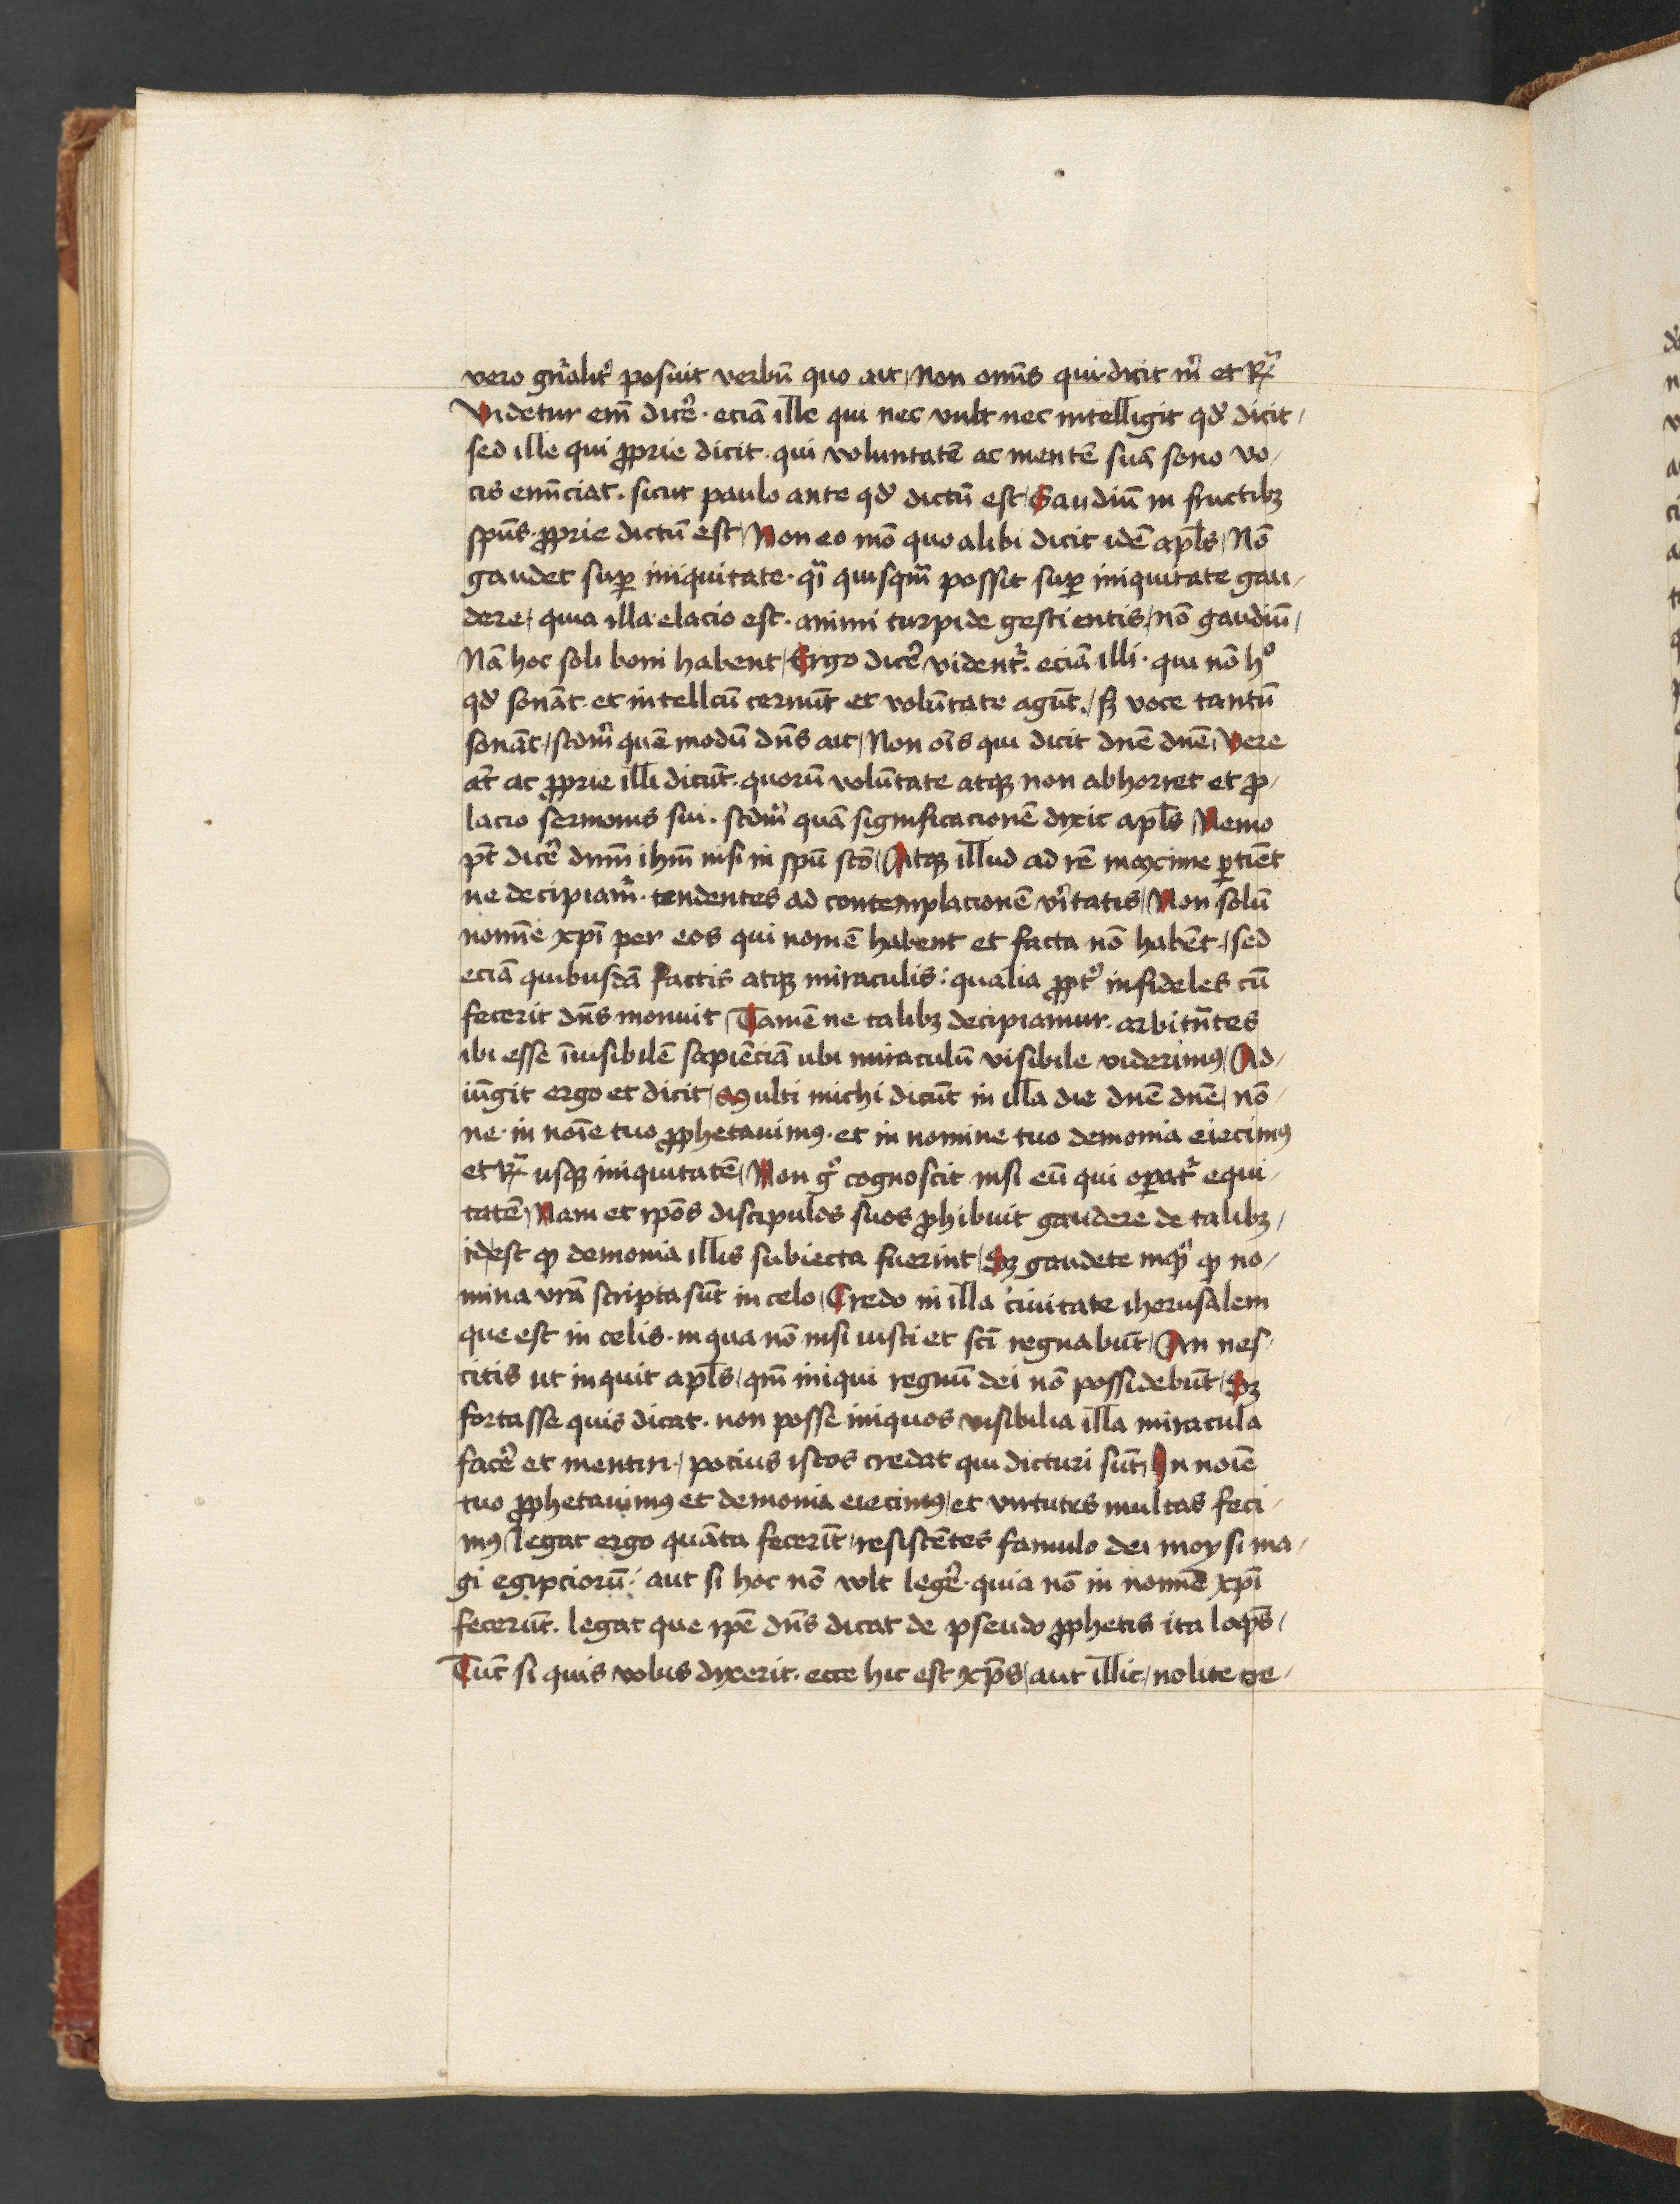 vero gn̄alit᷑ posuit verbū quo ait / Non om̄s qui dicit m̄ et R̄
Videtur em̄ dic᷑e · eciā ille qui nec vult nec intelligit qd̛ dicit /
sed ille qui ꝓprie dicit · qui voluntatē ac mentē suā sono vo /
cis enūciat · sicut paulo ante qd̛ dictū est / Gaudiū in fructibꝫ
sp̄us · ꝓprie dictū est / Non eo mō quo alibi dicit idē apl̄s / Nō
gaudet suꝑ iniquitate · qī quisqm̄ possit suꝑ iniquitate gau /
dere / quia illa elacio est · animi turpide gestientis / nō gaudiū /
Nā hoc soli boni habent / Ergo dic᷑e vident᷑ · eciā illi · qui nō hº
qd̛ sonāt · et intellcū cernūt et volūtate agūt · / sꝫ voce tantū
sonāt / scdm̄ quē modū dn̄s ait / Non oīs qui dicit dn̄e dn̄e / Vere
at̄ ac ꝓprie illi dicūt · quorū volūtate atqꝫ non abhorret et ꝓ /
lacio sermonis sui · scdm̄ quā significacionē dixit apl̄s / Nemo
pt̄ dic᷑e dnm̄ ihm̄ nisi in spū scō / Atqꝫ illud ad rē maxime ꝑtīēt
ne decipiam᷑ · tendentes ad contemplacionē v᷑itatis / Non solū
nomīe xp̄i per eos qui nomē habent et facta nō habēt · / sed
eciā quibusdā factis atqꝫ miraculis : qualia ꝓpt᷑ infideles cū
fecerit dn̄s monuit / Tamē ne talibꝫ decipiamur · arbitn̄tes
ibi esse īuisibilē sapiēciā ubi miraculū visibile viderimꝰ / Ad /
iūgit ergo et dicit / Multi michi dicūt in illa die dn̄e dn̄e / nō /
ne · in noīe tuo ꝓphetauimꝰ · et in nomine tuo demonia eiecimꝰ
et R̄ usqꝫ iniquitatē / Non gº cognoscit nisi eū qui oꝑat᷑ equi /
tatē / Nam et ip̄os discipulos suos ꝓhibuit gaudere de talibꝫ /
id est ꝙ demonia illis subiecta fuerint / Sꝫ gaudete inqͥ ꝙ no /
mina vr̄a scripta sūt in celo / Credo in illa ciuitate iherusalem
que est in celis · in qua nō nisi iusti et scī regnabūt / An nes /
citis ut inquit apl̄s / qm̄ iniqui regnū dei nō possidebūt / Sꝫ
fortasse quis dicat · non posse iniquos visibilia illa miracula
fac᷑e et mentiri · / pocius istos credat qui dicturi sūt / In noīe
tuo ꝓphetauimꝰ et demonia eiecimꝰ / et virtutes multas feci /
mꝰ / legat ergo quāta fecerīt / resistētes famulo dei moysi ma /
gi egipciorū · / aut si hoc nō vlt leg᷑e · quia nō in nomīe xp̄i
fecerūt · legat que ip̄e dn̄s dicat de pseudo ꝓphetis ita loqn̄s /
Tūc si quis vobis dixerit · ecce hic est xp̄s / aut illic / nolite cre /